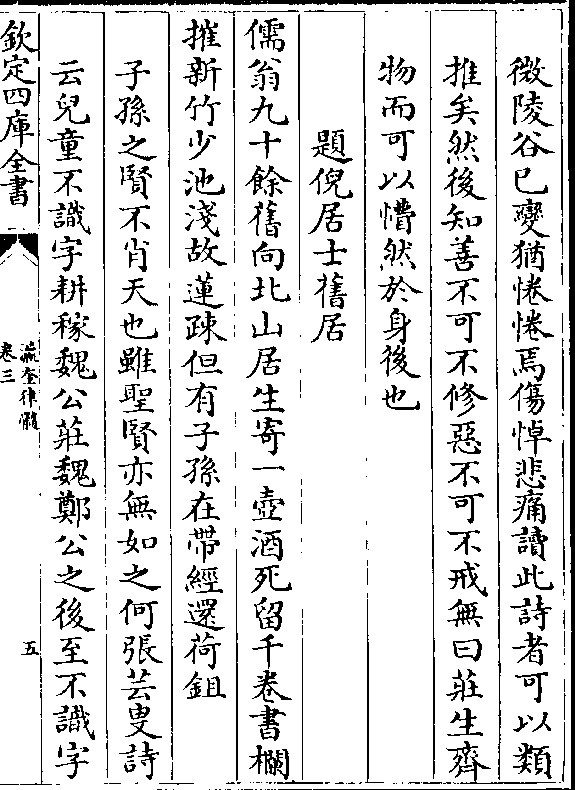 微陵谷已變猶惓惓焉傷悼悲痛讀此詩者可以類
推矣然後知善不可不修惡不可不戒無曰莊生齊
物而可以懵然於身後也
題倪居士舊居
儒翁九十餘舊向北山居生寄一壺酒死留千卷書欄
摧新竹少池淺故蓮疎但有子孫在帶經還荷鉏
子孫之賢不肖天也雖聖賢亦無如之何張芸叟詩
云兒童不識字耕稼魏公莊魏鄭公之後至不識字
欽定四庫全書
瀛奎律髓
卷三
五